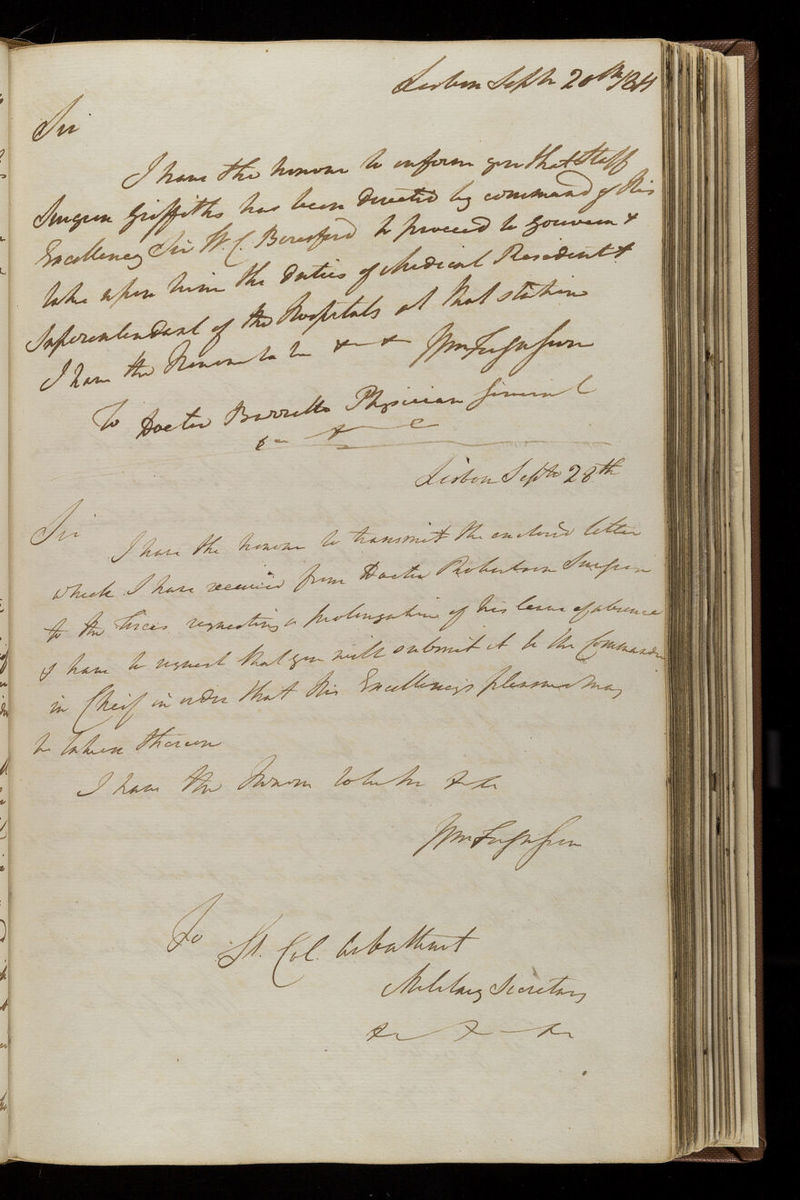 Lisbon Septr 20th 1811
Sir
I have the honour to inform you that Staff
Surgeon Griffiths has been directed by command of His
Excellency Sir W. C. Beresford to proceed to Gouveia &
take upon him the duties of Medical Resident &
Superentendant of the Hospitals at that station
I have the Honour to be &c &c Wm Fergusson
To Doctor Barretto Physician General
&c &c
Lisbon Septr 28th
Sir
I have the honour to transmit the enclosed letter
which I have received from Doctor Robertson Surgeon
to the Forces requesting a prolongation of his leave of absence
& have to request that you will submit it to the Commander
in Cheif in order that His Excellency's pleasure may
be taken thereon
I have the Honour to be &c &c
Wm Fergusson
To Lt. Col. Arbuthnot
Military Secretary
&c &c &c